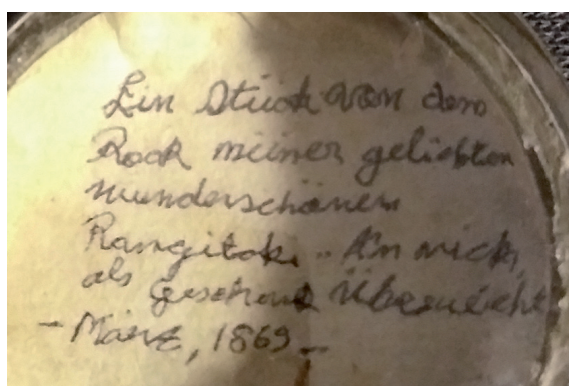 Ein Stück von dem
Rock meiner geliebten
wunderschönen
Rangitoki .. An mich,
als Geschenk Überreicht
- März, 1869 -